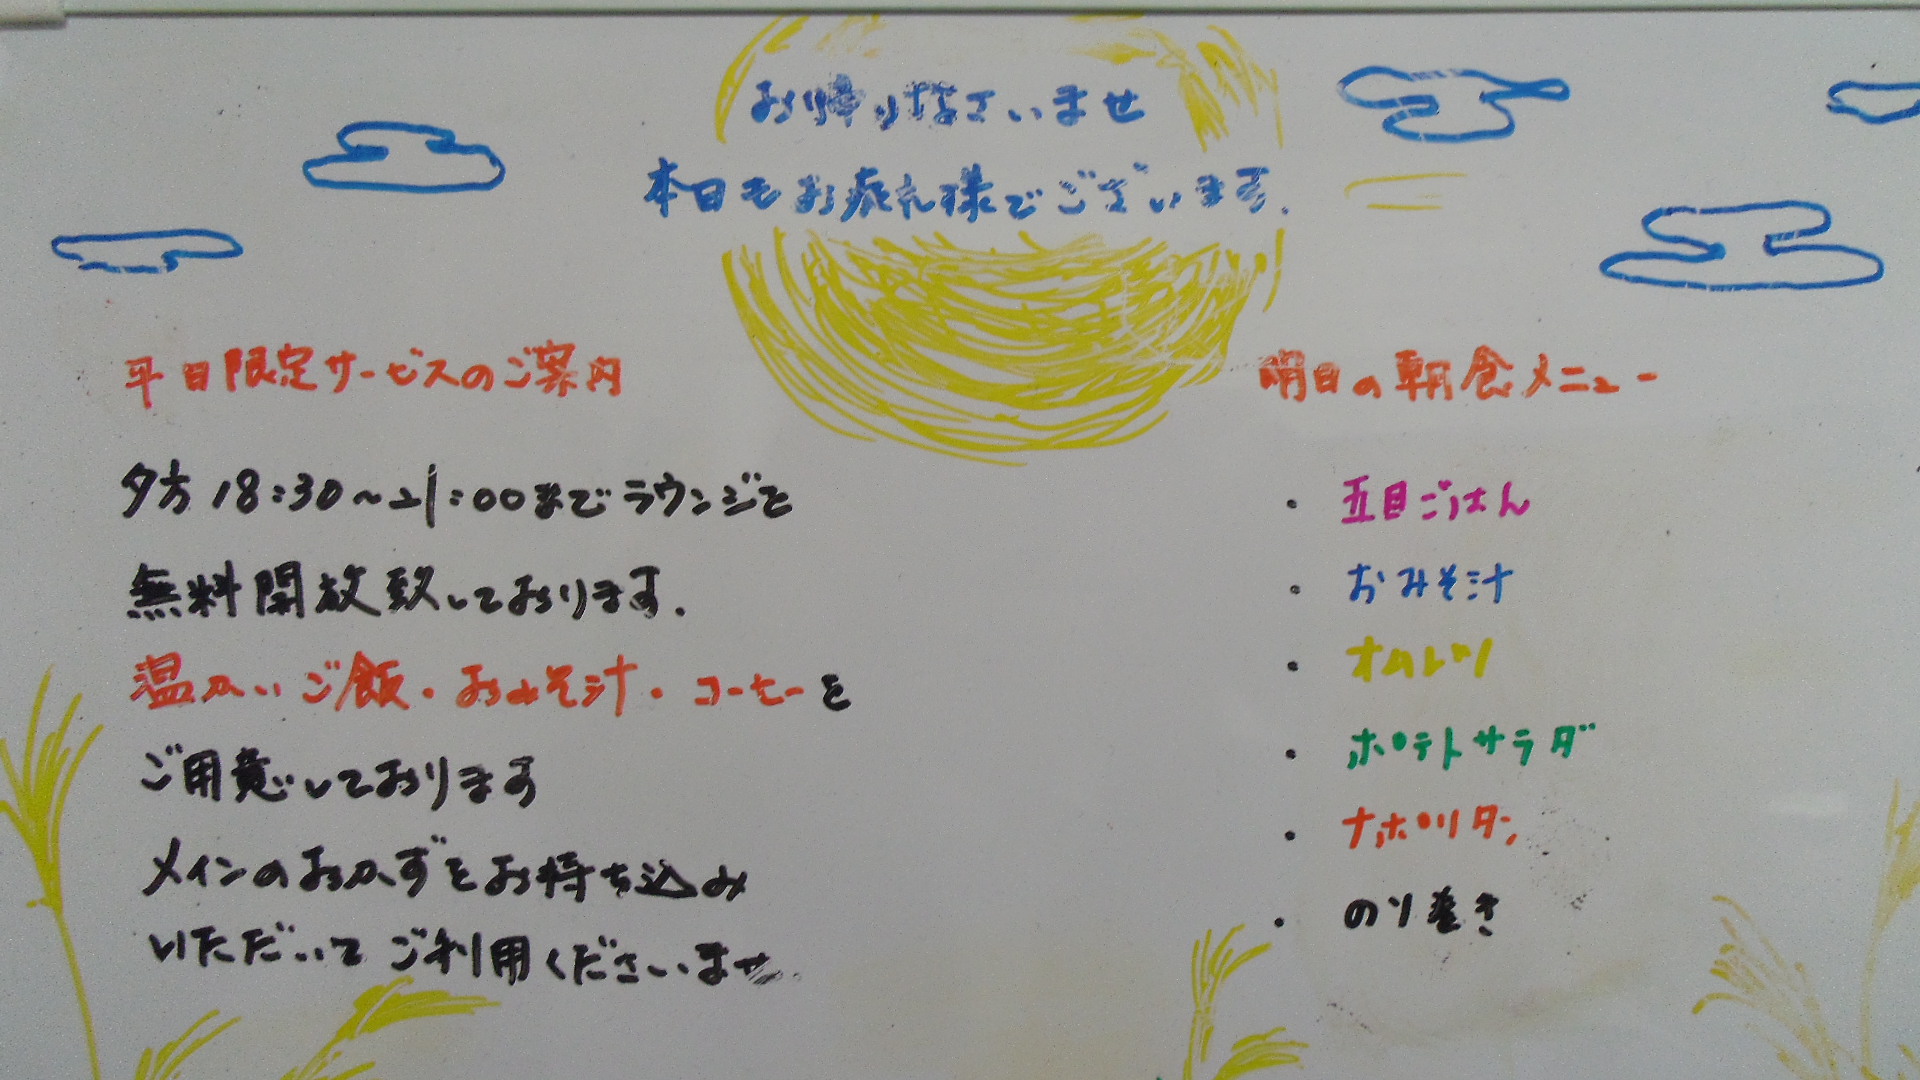 お帰りなさいませ
本日もお疲れ様でございます.
平日限定サービスのご案内
夕方18:30〜21:00までラウンジを
無料開放致しております.
温かいご飯・おみそ汁・コーヒーを
ご用意しております
メインのおかずをお持ち込み
いただいてご利用くださいませ
明日の朝食メニュー
・五目ごはん
・おみそ汁
・オムレツ
・ポテトサラダ
・ナポリタン
・のり巻き